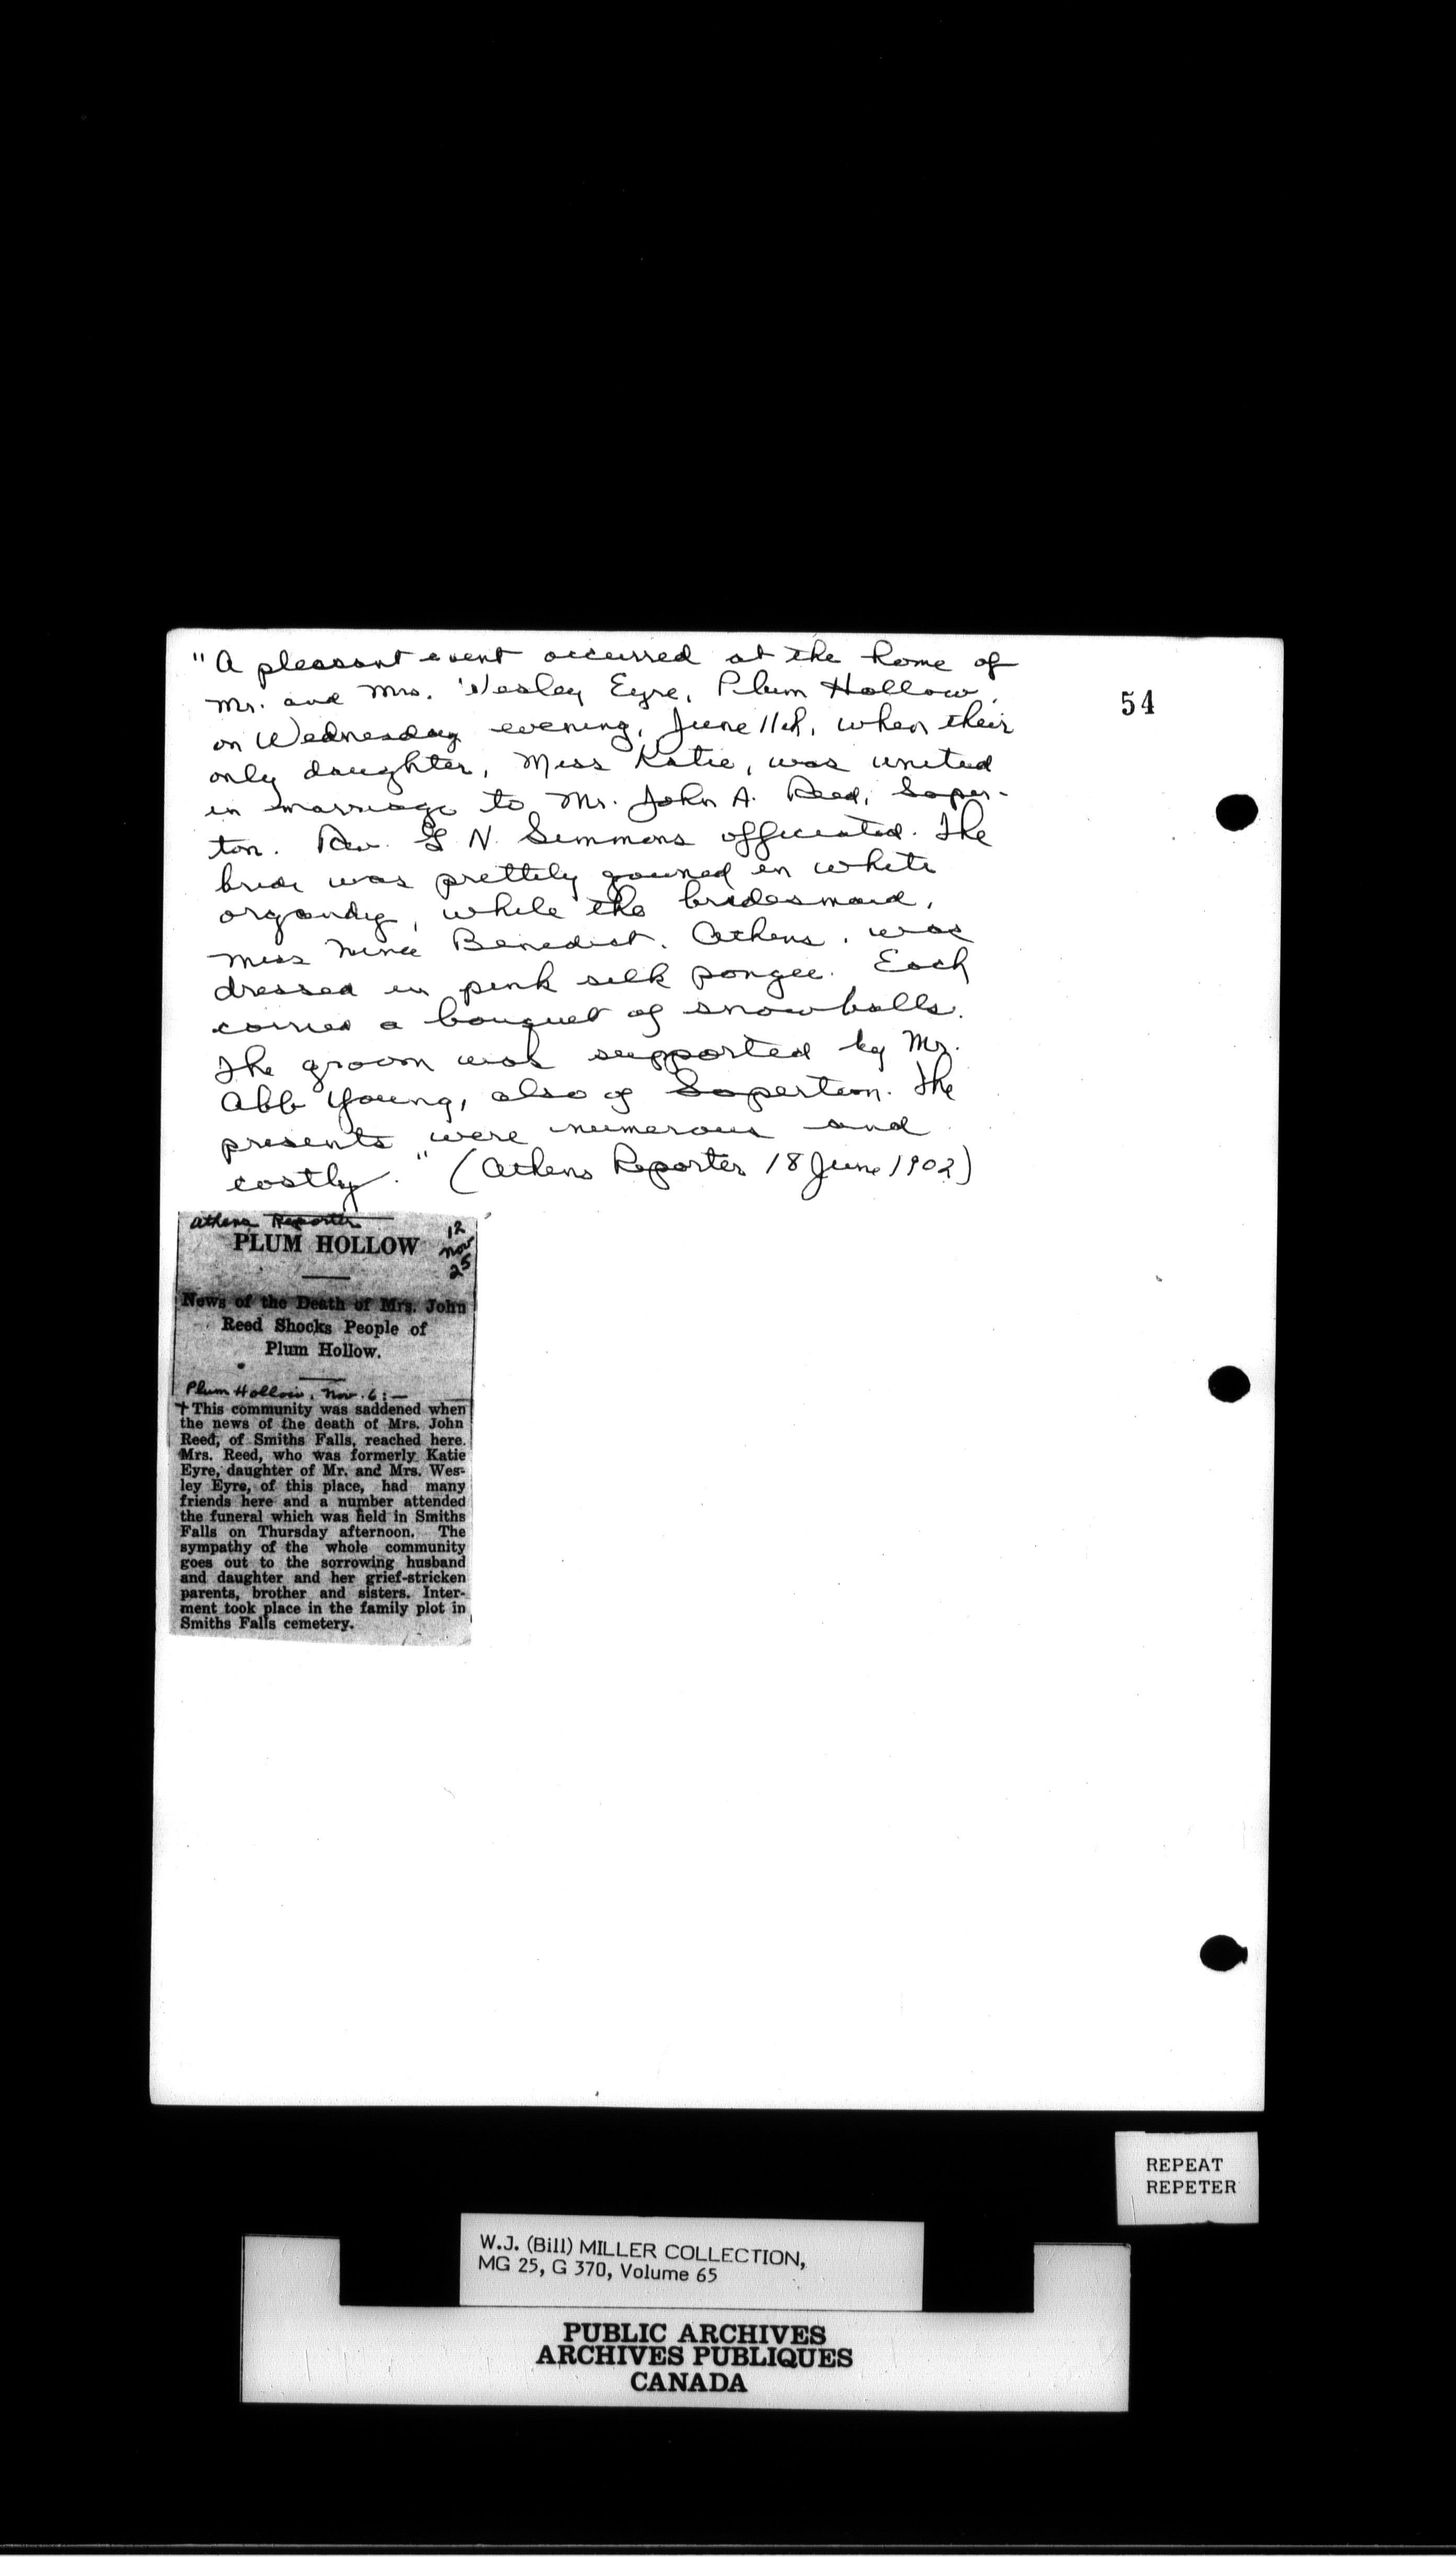 "A pleasant event occurred at the home of
Mr. and Mrs. Wesley Eyre, Plum Hollow,
54
on Wednesday evening, June 11th, when their
only daughter, Miss Katie, was united
in marriage to Mr. John A. Reed, Soper-
ton. Rev. G N. Simmons officiated. The
bride was prettily gowned in white
organdy, while the bridesmaid,
Miss Benedict, Athens, was
dressed in pink silk pongee. Each
carried a bouquet of snowballs.
The groom was supported by Mr.
Abb Young, also of Soperton. The
presents were numerous and
costly." (Athens Reporter 18 June 1902)
Athens Reporter
12
Nov
25
PLUM HOLLOW
News of the Death of Mrs. John
Reed Shocks People of
Plum Hollow.
Plum Hollow, Nov. 6:—
+ This community was saddened when
the news of the death of Mrs. John
Reed, of Smiths Falls, reached here.
Mrs. Reed, who was formerly Katie
Eyre, daughter of Mr. and Mrs. Wes-
ley Eyre, of this place, had many
friends here and a number attended
the funeral which was held in Smiths
Falls on Thursday afternoon. The
sympathy of the whole community
goes out to the sorrowing husband
and daughter and her grief-stricken
parents, brother and sisters. Inter-
ment took place in the family plot in
Smiths Falls cemetery.
REPEAT
REPETER
W.J. (Bill) MILLER COLLECTION,
MG 25, G 370, Volume 65
PUBLIC ARCHIVES
ARCHIVES PUBLIQUES
CANADA